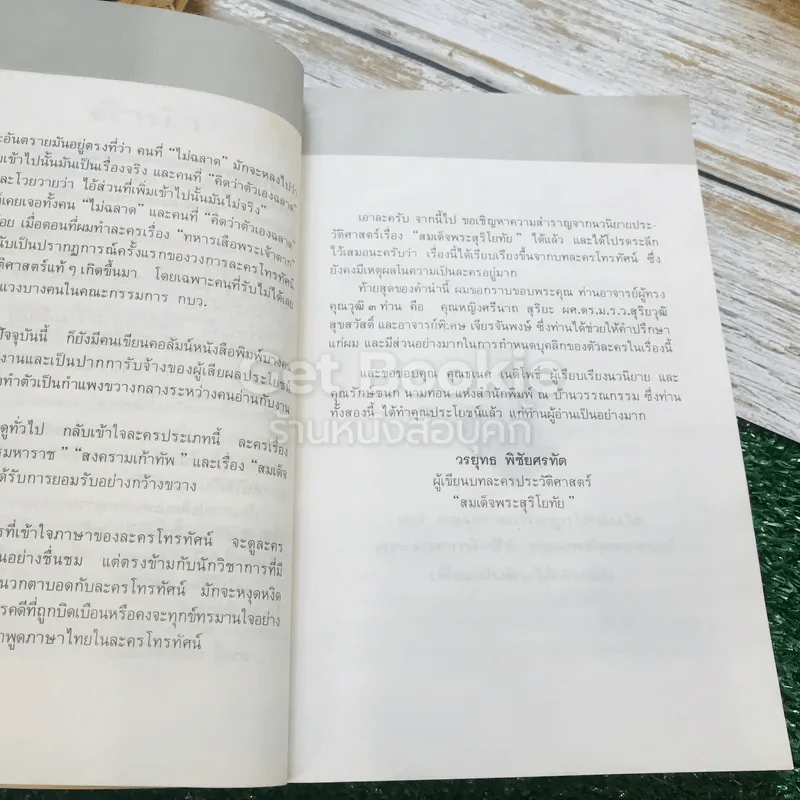 ะอันตรายมันอยู่ตรงที่ว่า คนที่ “ไม่ฉลาด” มักจะหลงไปว่า
มเข้าไปนั้นมันเป็นเรื่องจริง และคนที่ “คิดว่าตัวเองฉลาด”
ละโวยวายว่า ไอ้ส่วนที่เพิ่มเข้าไปนั้นมันไม่จริง”
ด้เคยเจอทั้งคน “ไม่ฉลาด” และคนที่ “คิดว่าตัวเองฉลาด”
อย เมื่อตอนที่ผมทำละครเรื่อง “ทหารเสือพระเจ้าตาก”
นับเป็นปรากฏการณ์ครั้งแรกของวงการละครโทรทัศน์
ติศาสตร์แท้ๆ เกิดขึ้นมา โดยเฉพาะคนที่รับไม่ได้เลย
แวงบางคนในคณะกรรมการ กบว.
ปัจจุบันนี้ ก็ยังมีคนเขียนคอลัมน์หนังสือพิมพ์บางคน
งานและเป็นปากการับจ้างของผู้เสียผลประโยชน์
งทำตัวเป็นกำแพงขวางกลางระหว่างคนอ่านกับงาน
ดูทั่วไป กลับเข้าใจละครประเภทนี้ ละครเรื่อง
รมหาราช” “สงครามเก้าทัพ” และเรื่อง “สมเด็จ
ด้รับการยอมรับอย่างกว้างขวาง
รที่เข้าใจภาษาของละครโทรทัศน์ จะดูละคร
นอย่างชื่นชม แต่ตรงข้ามกับนักวิชาการที่มี
นวกตาบอดกับละครโทรทัศน์ มักจะหงุดหงิด
รคดีที่ถูกบิดเบือนหรือคงจะทุกข์ทรมานใจอย่าง
าพูดภาษาไทยในละครโทรทัศน์
เอาละครับ จากนี้ไป ขอเชิญหาความสำราญจากนวนิยายประ-
วัติศาสตร์เรื่อง “สมเด็จพระสุริโยทัย” ได้แล้ว และได้โปรดระลึก
ไว้เสมอนะครับว่า เรื่องนี้ได้เรียบเรียงขึ้นจากบทละครโทรทัศน์ ซึ่ง
ยังคงมีเหตุผลในความเป็นละครอยู่มาก
ท้ายสุดของคำนำนี้ ผมขอกราบขอบพระคุณ ท่านอาจารย์ผู้ทรง
คุณวุฒิ ๓ ท่าน คือ คุณหญิงศรีนาถ สุริยะ ผศ.ดร.ม.ร.ว.สุริยวุฒิ
สุขสวัสดิ์ และอาจารย์พิเศษ เจียรจันพงษ์ ซึ่งท่านได้ช่วยให้คำปรึกษา
แก่ผม และมีส่วนอย่างมากในการกำหนดบุคลิกของตัวละครในเรื่องนี้
และขอขอบคุณ คุณธเนศ เนติโพธิ์ ผู้เรียบเรียงนวนิยาย และ
คุณรักษ์ชนก นามทอน แห่งสำนักพิมพ์ ณ บ้านวรรณกรรม ซึ่งท่าน
ทั้งสองนี้ ได้ทำคุณประโยชน์แล้ว แก่ท่านผู้อ่านเป็นอย่างมาก
วรยุทธ พิชัยศรทัต
ผู้เขียนบทละครประวัติศาสตร์
“สมเด็จพระสุริโยทัย”
Get Bookie
ร้านหนังสือบุคกี้